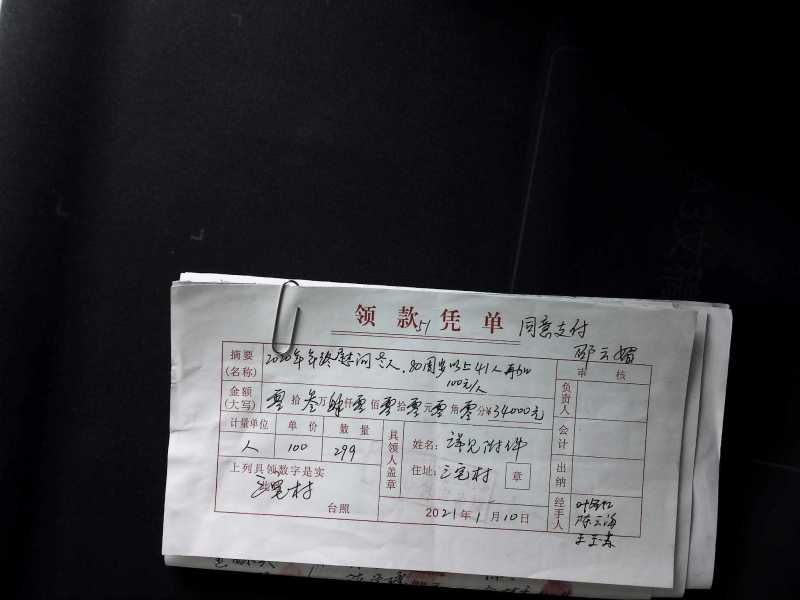 领款凭单
51
同意支付
邵云媚
摘要
(名称)
2020年年终慰问老人,80周岁以上41人再加
100元/人
审核
金额
(大写)
零拾叁万肆仟零佰零拾零元零角零分¥34000元
负责人
计量单位 单价 数量
人 100 299
具领人盖章
姓名:详见附件
住址:三宅村 章
会计
出纳
上列具领数字是实
三宅村
台照
2021年1月10日
经手人
陈云海